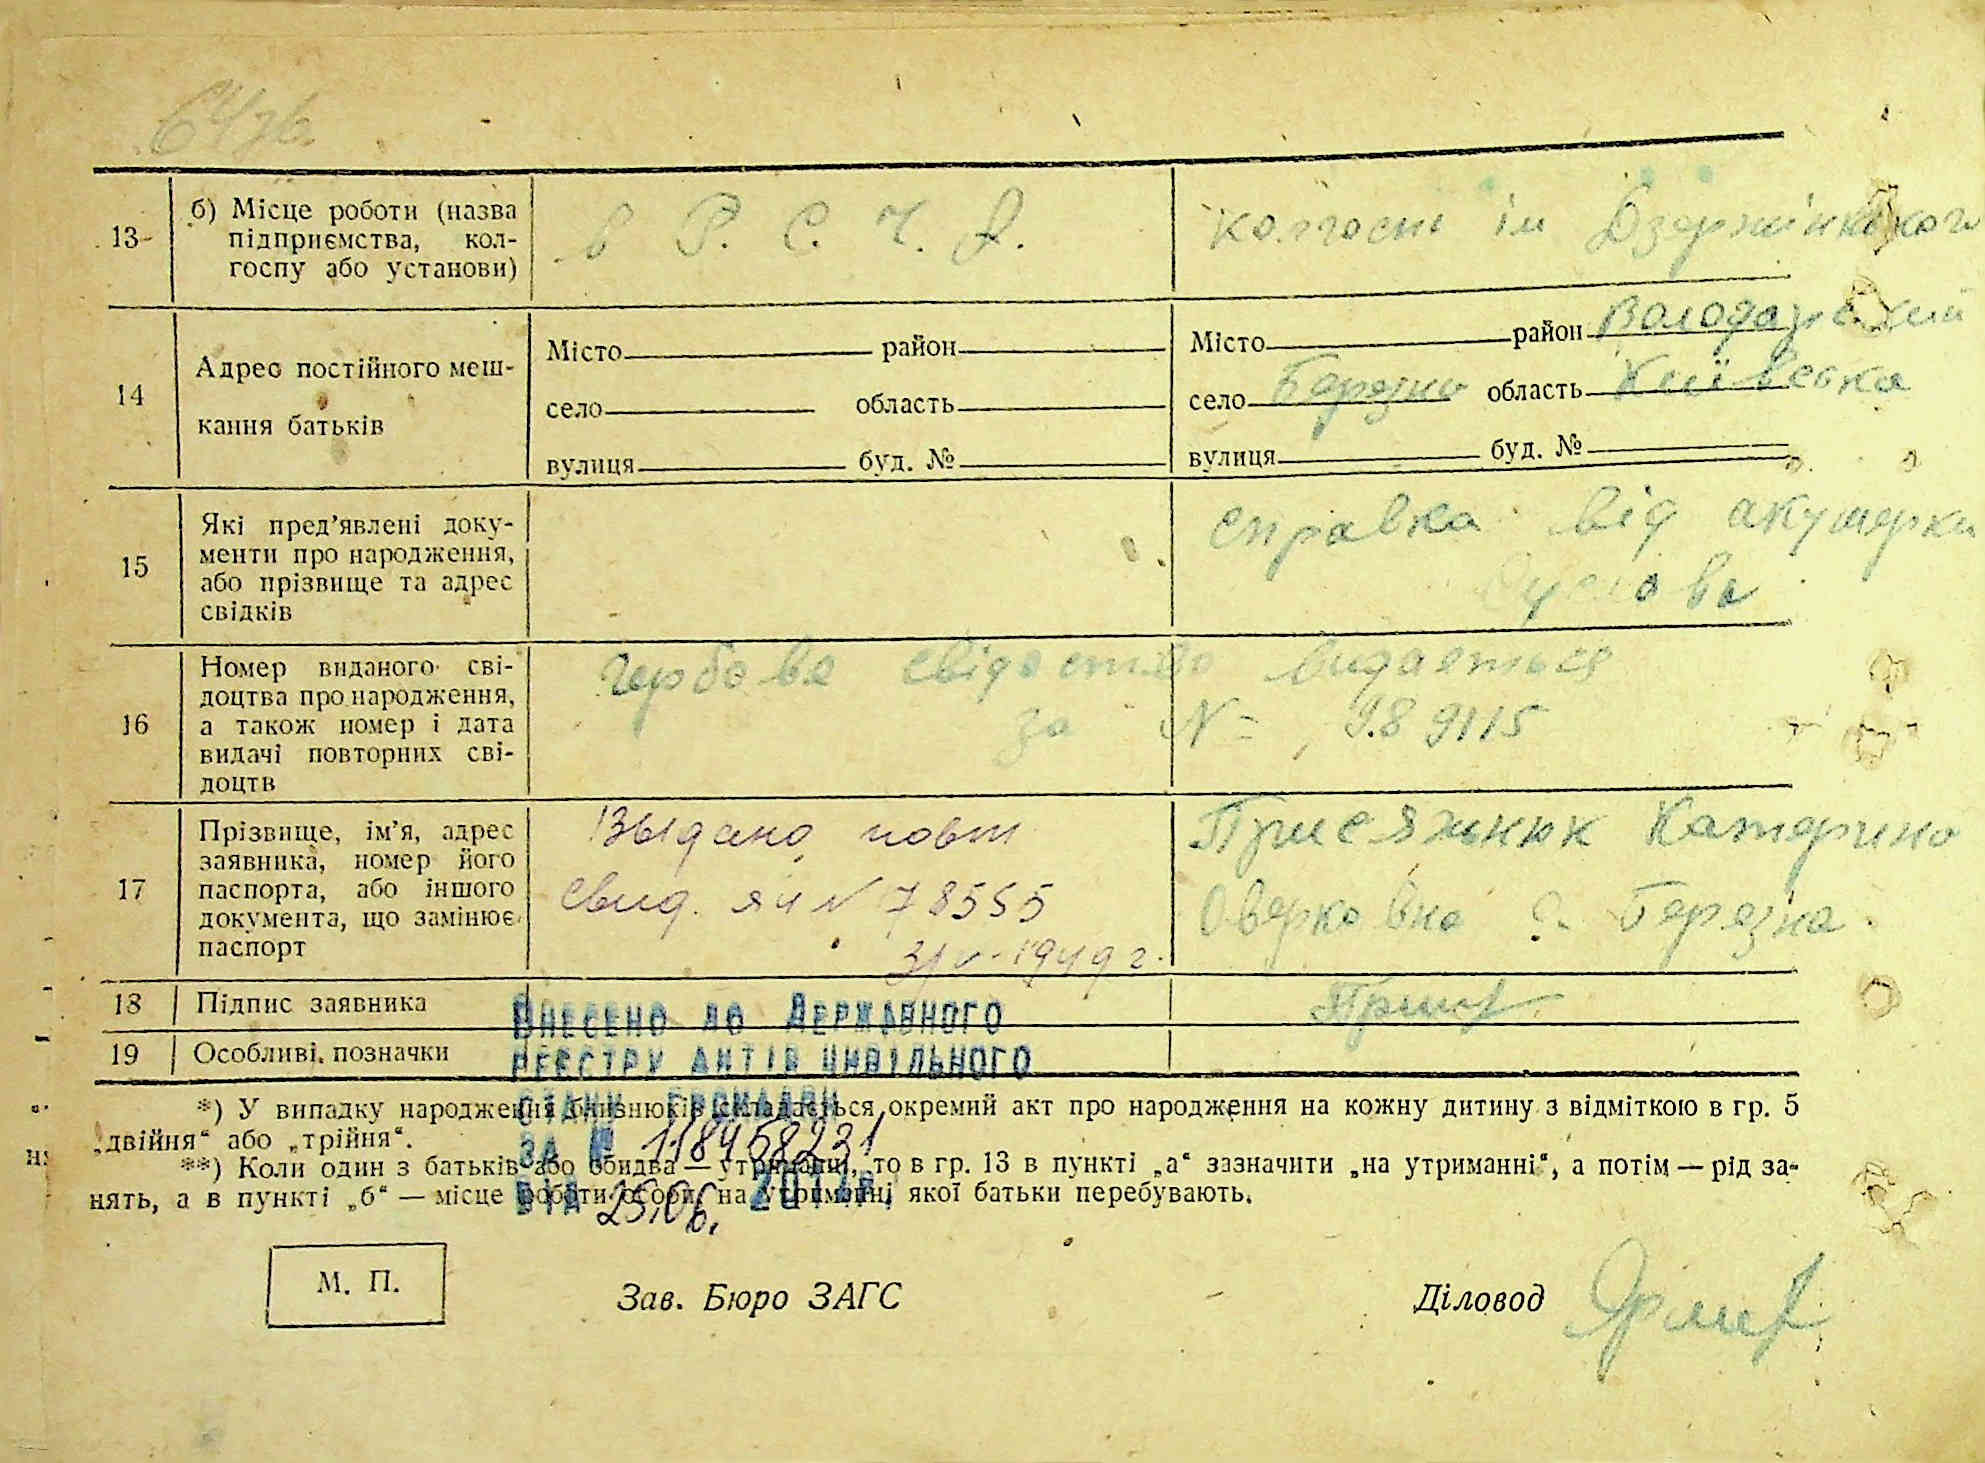 64 зв.
13 б) Місце роботи (назва підприємства, кол-
госпу або установи)
в Р. С. Ч. А.
колгосп ім Дзержінського
14 Адрес постійного меш-
кання батьків
Місто район
село область
вулиця буд. №
Місто район Володарський
село Березно область Київська
вулиця буд. №
15 Які пред’явлені доку-
менти про народження,
або прізвище та адрес
свідків
справка від акушерки
16 Номер виданого сві-
доцтва про народження,
а також номер і дата
видачі повторних сві-
доцтв
гербове свідоство видається
за № 989115
17 Прізвище, ім’я, адрес
заявника, номер його
паспорта, або іншого
документа, що замінює
паспорт
Выдано повт
свид. ЯЧ № 78555
31/V-1949 г.
Присяжнюк Катерина
Оверковна с. Березна.
18 Підпис заявника
19 Особливі позначки
Внесено до Державного
реєстру актів цивільного
стану громадян
за № 118458231
від 25.06.
*) У випадку народження близнюків складається окремий акт про народження на кожну дитину з відміткою в гр. 5
„двійня“ або „трійня“.
**) Коли один з батьків або обидва — утриманці, то в гр. 13 в пункті „а“ зазначити „на утриманні“, а потім — рід за-
нять, а в пункті „б“ — місце роботи особи, на утриманні якої батьки перебувають.
М. П.
Зав. Бюро ЗАГС
Діловод